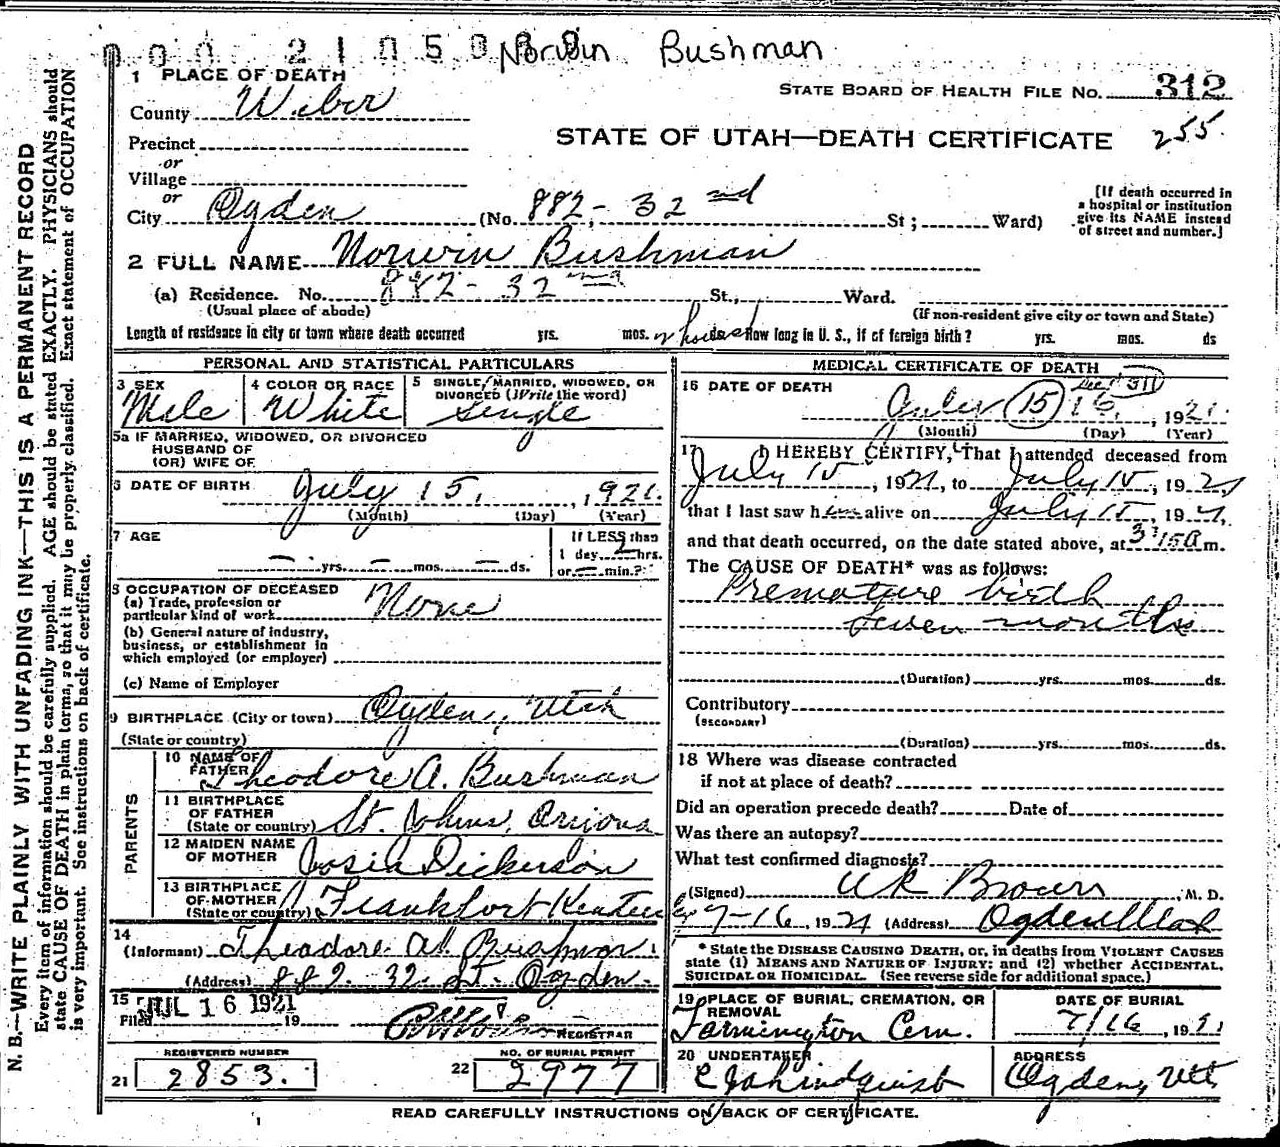 Norwin Bushman
1 PLACE OF DEATH
STATE BOARD OF HEALTH FILE NO. 312
County Weber
STATE OF UTAH—DEATH CERTIFICATE 255
Precinct
or
Village
or
City Ogden (No. 882 - 32 nd St ; Ward)
[If death occurred in
a hospital or institution
give its NAME instead
of street and number.]
2 FULL NAME Norwin Bushman
(a) Residence. No. 882 - 32 nd St., Ward.
(Usual place of abode)
(If non-resident give city or town and State)
Length of residence in city or town where death occurred yrs. mos. ds. How long in U. S., if of foreign birth? yrs. mos. ds
PERSONAL AND STATISTICAL PARTICULARS
3 SEX
Male
4 COLOR OR RACE
White
5 SINGLE, MARRIED, WIDOWED, OR
DIVORCED (Write the word)
Single
5a IF MARRIED, WIDOWED, OR DIVORCED
HUSBAND OF
(OR) WIFE OF
6 DATE OF BIRTH July 15, 1921.
(Month) (Day) (Year)
7 AGE
— yrs. — mos. — ds.
If LESS than
1 day, 2 hrs.
or — min.?
8 OCCUPATION OF DECEASED
(a) Trade, profession or
particular kind of work None
(b) General nature of industry,
business, or establishment in
which employed (or employer)
(c) Name of Employer
9 BIRTHPLACE (City or town) Ogden, Utah
(State or country)
PARENTS
10 NAME OF
FATHER Theodore A. Bushman
11 BIRTHPLACE
OF FATHER
(State or country) St. Johns, Arizona
12 MAIDEN NAME
OF MOTHER Dickerson
13 BIRTHPLACE
OF MOTHER
(State or country) Frankfort
14
(Informant) Theodore A. Bushman.
(Address) 882. 32. St. Ogden.
15
Filed JUL 16 1921 19
REGISTRAR
REGISTERED NUMBER
21 2853.
NO. OF BURIAL PERMIT
22 2977
MEDICAL CERTIFICATE OF DEATH
16 DATE OF DEATH
July 15 16, 1921.
(Month) (Day) (Year)
17 I HEREBY CERTIFY, That I attended deceased from
July 15, 1921, to July 15, 1921,
that I last saw him alive on July 15, 1921,
and that death occurred, on the date stated above, at 3:15 a m.
The CAUSE OF DEATH* was as follows:
Premature birth
seven months
(Duration) yrs. mos. ds.
Contributory
(SECONDARY)
(Duration) yrs. mos. ds.
18 Where was disease contracted
if not at place of death?
Did an operation precede death? Date of
Was there an autopsy?
What test confirmed diagnosis?
(Signed) , M. D.
7-16, 1921 (Address) Ogden Utah
* State the DISEASE CAUSING DEATH, or, in deaths from VIOLENT CAUSES
state (1) MEANS AND NATURE OF INJURY; and (2) whether ACCIDENTAL,
SUICIDAL OR HOMICIDAL. (See reverse side for additional space.)
19 PLACE OF BURIAL, CREMATION, OR
REMOVAL
Farmington Cem.
DATE OF BURIAL
7/16, 1921
20 UNDERTAKER
Lindquist
ADDRESS
Ogden, Ut
READ CAREFULLY INSTRUCTIONS ON BACK OF CERTIFICATE.
N. B.—WRITE PLAINLY WITH UNFADING INK—THIS IS A PERMANENT RECORD
Every item of information should be carefully supplied. AGE should be stated EXACTLY. PHYSICIANS should
state CAUSE OF DEATH in plain terms, so that it may be properly classified. Exact statement of OCCUPATION
is very important. See instructions on back of certificate.